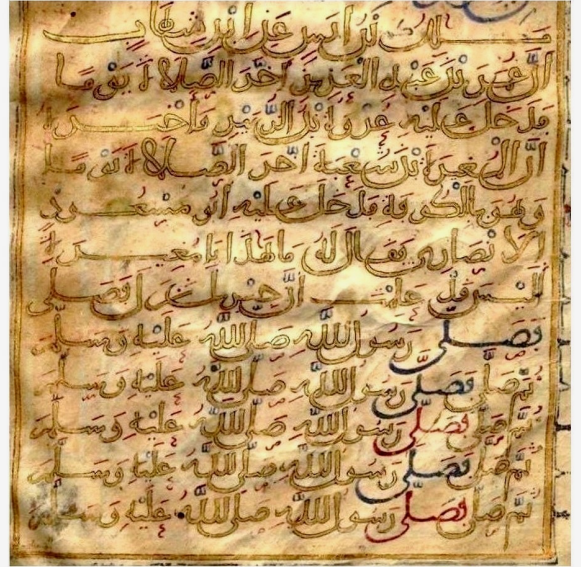 ملك بن أنس عن ابن شهاب
أن عمر بن عبد العزيز أخر الصلاة يوما
فدخل عليه عروة بن الزبير فأخبره
أن المغيرة بن شعبة أخر الصلاة يوما
وهو بالكوفة فدخل عليه أبو مسعود
الأنصاري فقال له ما هذا يا مغيرة
أليس قد علمت أن جبريل نزل فصلى
فصلى رسول الله صلى الله عليه وسلم
ثم صلى فصلى رسول الله صلى الله عليه وسلم
ثم صلى فصلى رسول الله صلى الله عليه وسلم
ثم صلى فصلى رسول الله صلى الله عليه وسلم
ثم صلى فصلى رسول الله صلى الله عليه وسلم